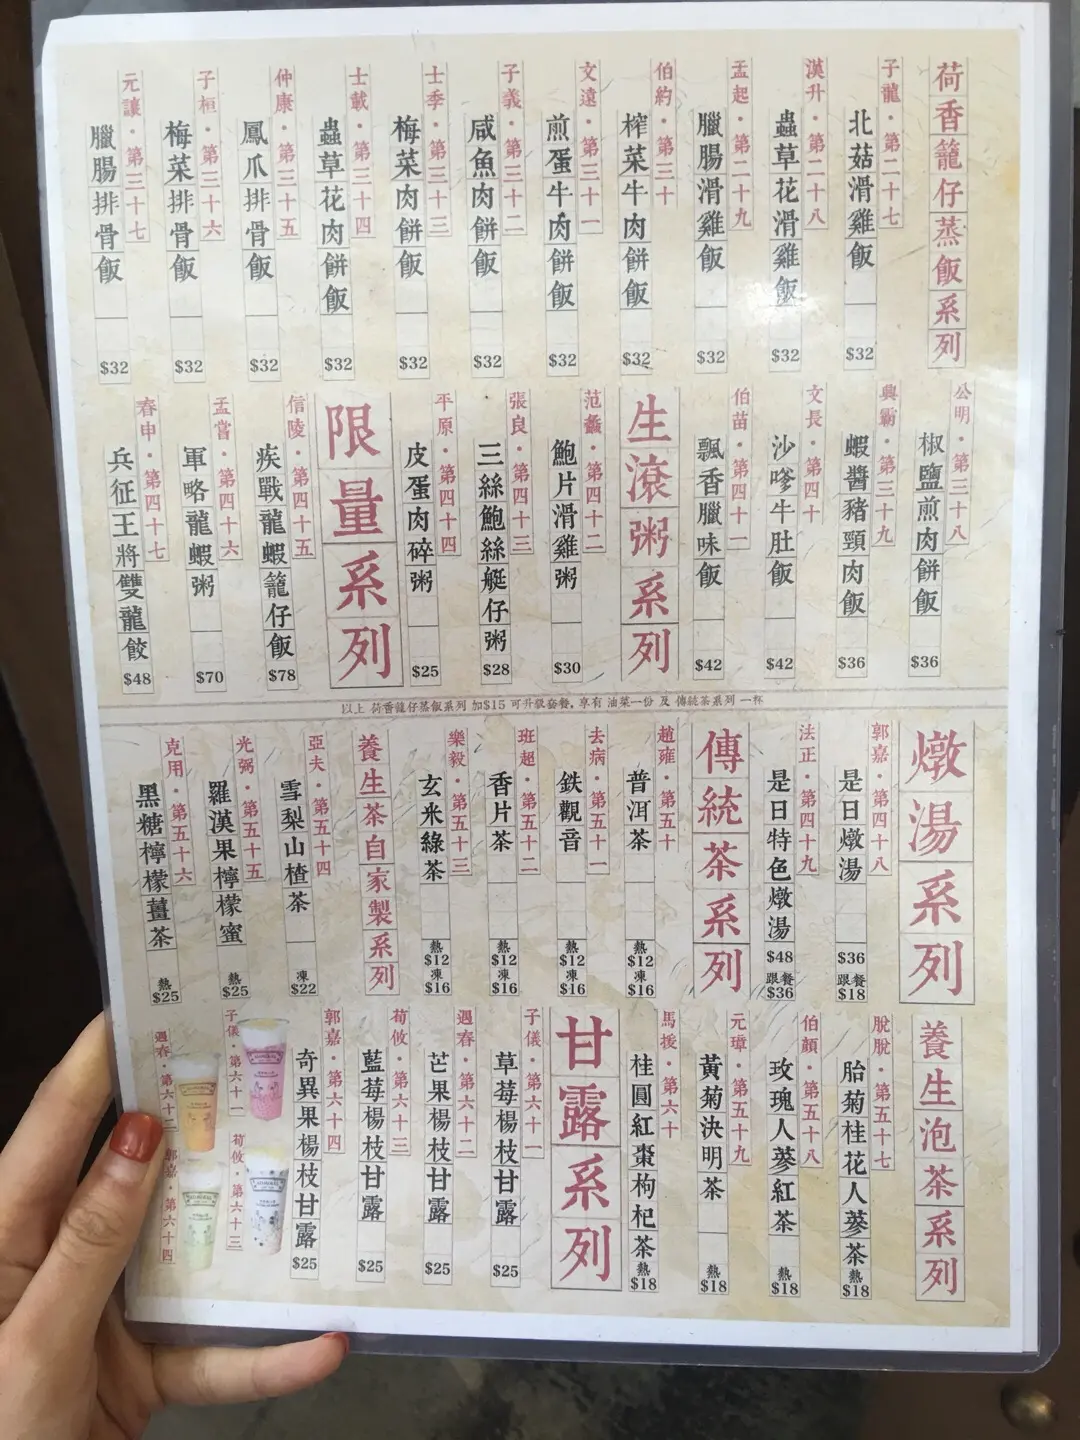 荷香籠仔蒸飯系列
子龍・第二十七
北菇滑雞飯 $32
漢升・第二十八
蟲草花滑雞飯 $32
孟起・第二十九
臘腸滑雞飯 $32
伯約・第三十
榨菜牛肉餅飯 $32
文遠・第三十一
煎蛋牛肉餅飯 $32
子義・第三十二
咸魚肉餅飯 $32
士季・第三十三
梅菜肉餅飯 $32
士載・第三十四
蟲草花肉餅飯 $32
仲康・第三十五
鳳爪排骨飯 $32
子桓・第三十六
梅菜排骨飯 $32
元讓・第三十七
臘腸排骨飯 $32
公明・第三十八
椒鹽煎肉餅飯 $36
興霸・第三十九
蝦醬豬頸肉飯 $36
文長・第四十
沙嗲牛肚飯 $42
伯苗・第四十一
飄香臘味飯 $42
生滾粥系列
范蠡・第四十二
鮑片滑雞粥 $30
張良・第四十三
三絲鮑絲艇仔粥 $28
平原・第四十四
皮蛋肉碎粥 $25
限量系列
信陵・第四十五
疾戰龍蝦籠仔飯 $78
孟嘗・第四十六
軍略龍蝦粥 $70
春申・第四十七
兵征王將雙龍餃 $48
以上 荷香籠仔蒸飯系列 加$15 可升級套餐, 享有 油菜一份 及 傳統茶系列 一杯
燉湯系列
郭嘉・第四十八
是日燉湯 $36 跟餐 $18
法正・第四十九
是日特色燉湯 $48 跟餐 $36
傳統茶系列
趙雍・第五十
普洱茶 熱 $12 凍 $16
去病・第五十一
鉄觀音 熱 $12 凍 $16
班超・第五十二
香片茶 熱 $12 凍 $16
樂毅・第五十三
玄米綠茶 熱 $12 凍 $16
養生茶自家製系列
亞夫・第五十四
雪梨山楂茶 凍 $22
光弼・第五十五
羅漢果檸檬蜜 熱 $25
克用・第五十六
黑糖檸檬薑茶 熱 $25
養生泡茶系列
脫脫・第五十七
胎菊桂花人蔘茶 熱 $18
伯顏・第五十八
玫瑰人蔘紅茶 熱 $18
元璋・第五十九
黃菊決明茶 熱 $18
馬援・第六十
桂圓紅棗枸杞茶 熱 $18
甘露系列
子儀・第六十一
草莓楊枝甘露 $25
遇春・第六十二
芒果楊枝甘露 $25
荀攸・第六十三
藍莓楊枝甘露 $25
郭嘉・第六十四
奇異果楊枝甘露 $25
子儀・第六十一
荀攸・第六十三
遇春・第六十二
郭嘉・第六十四